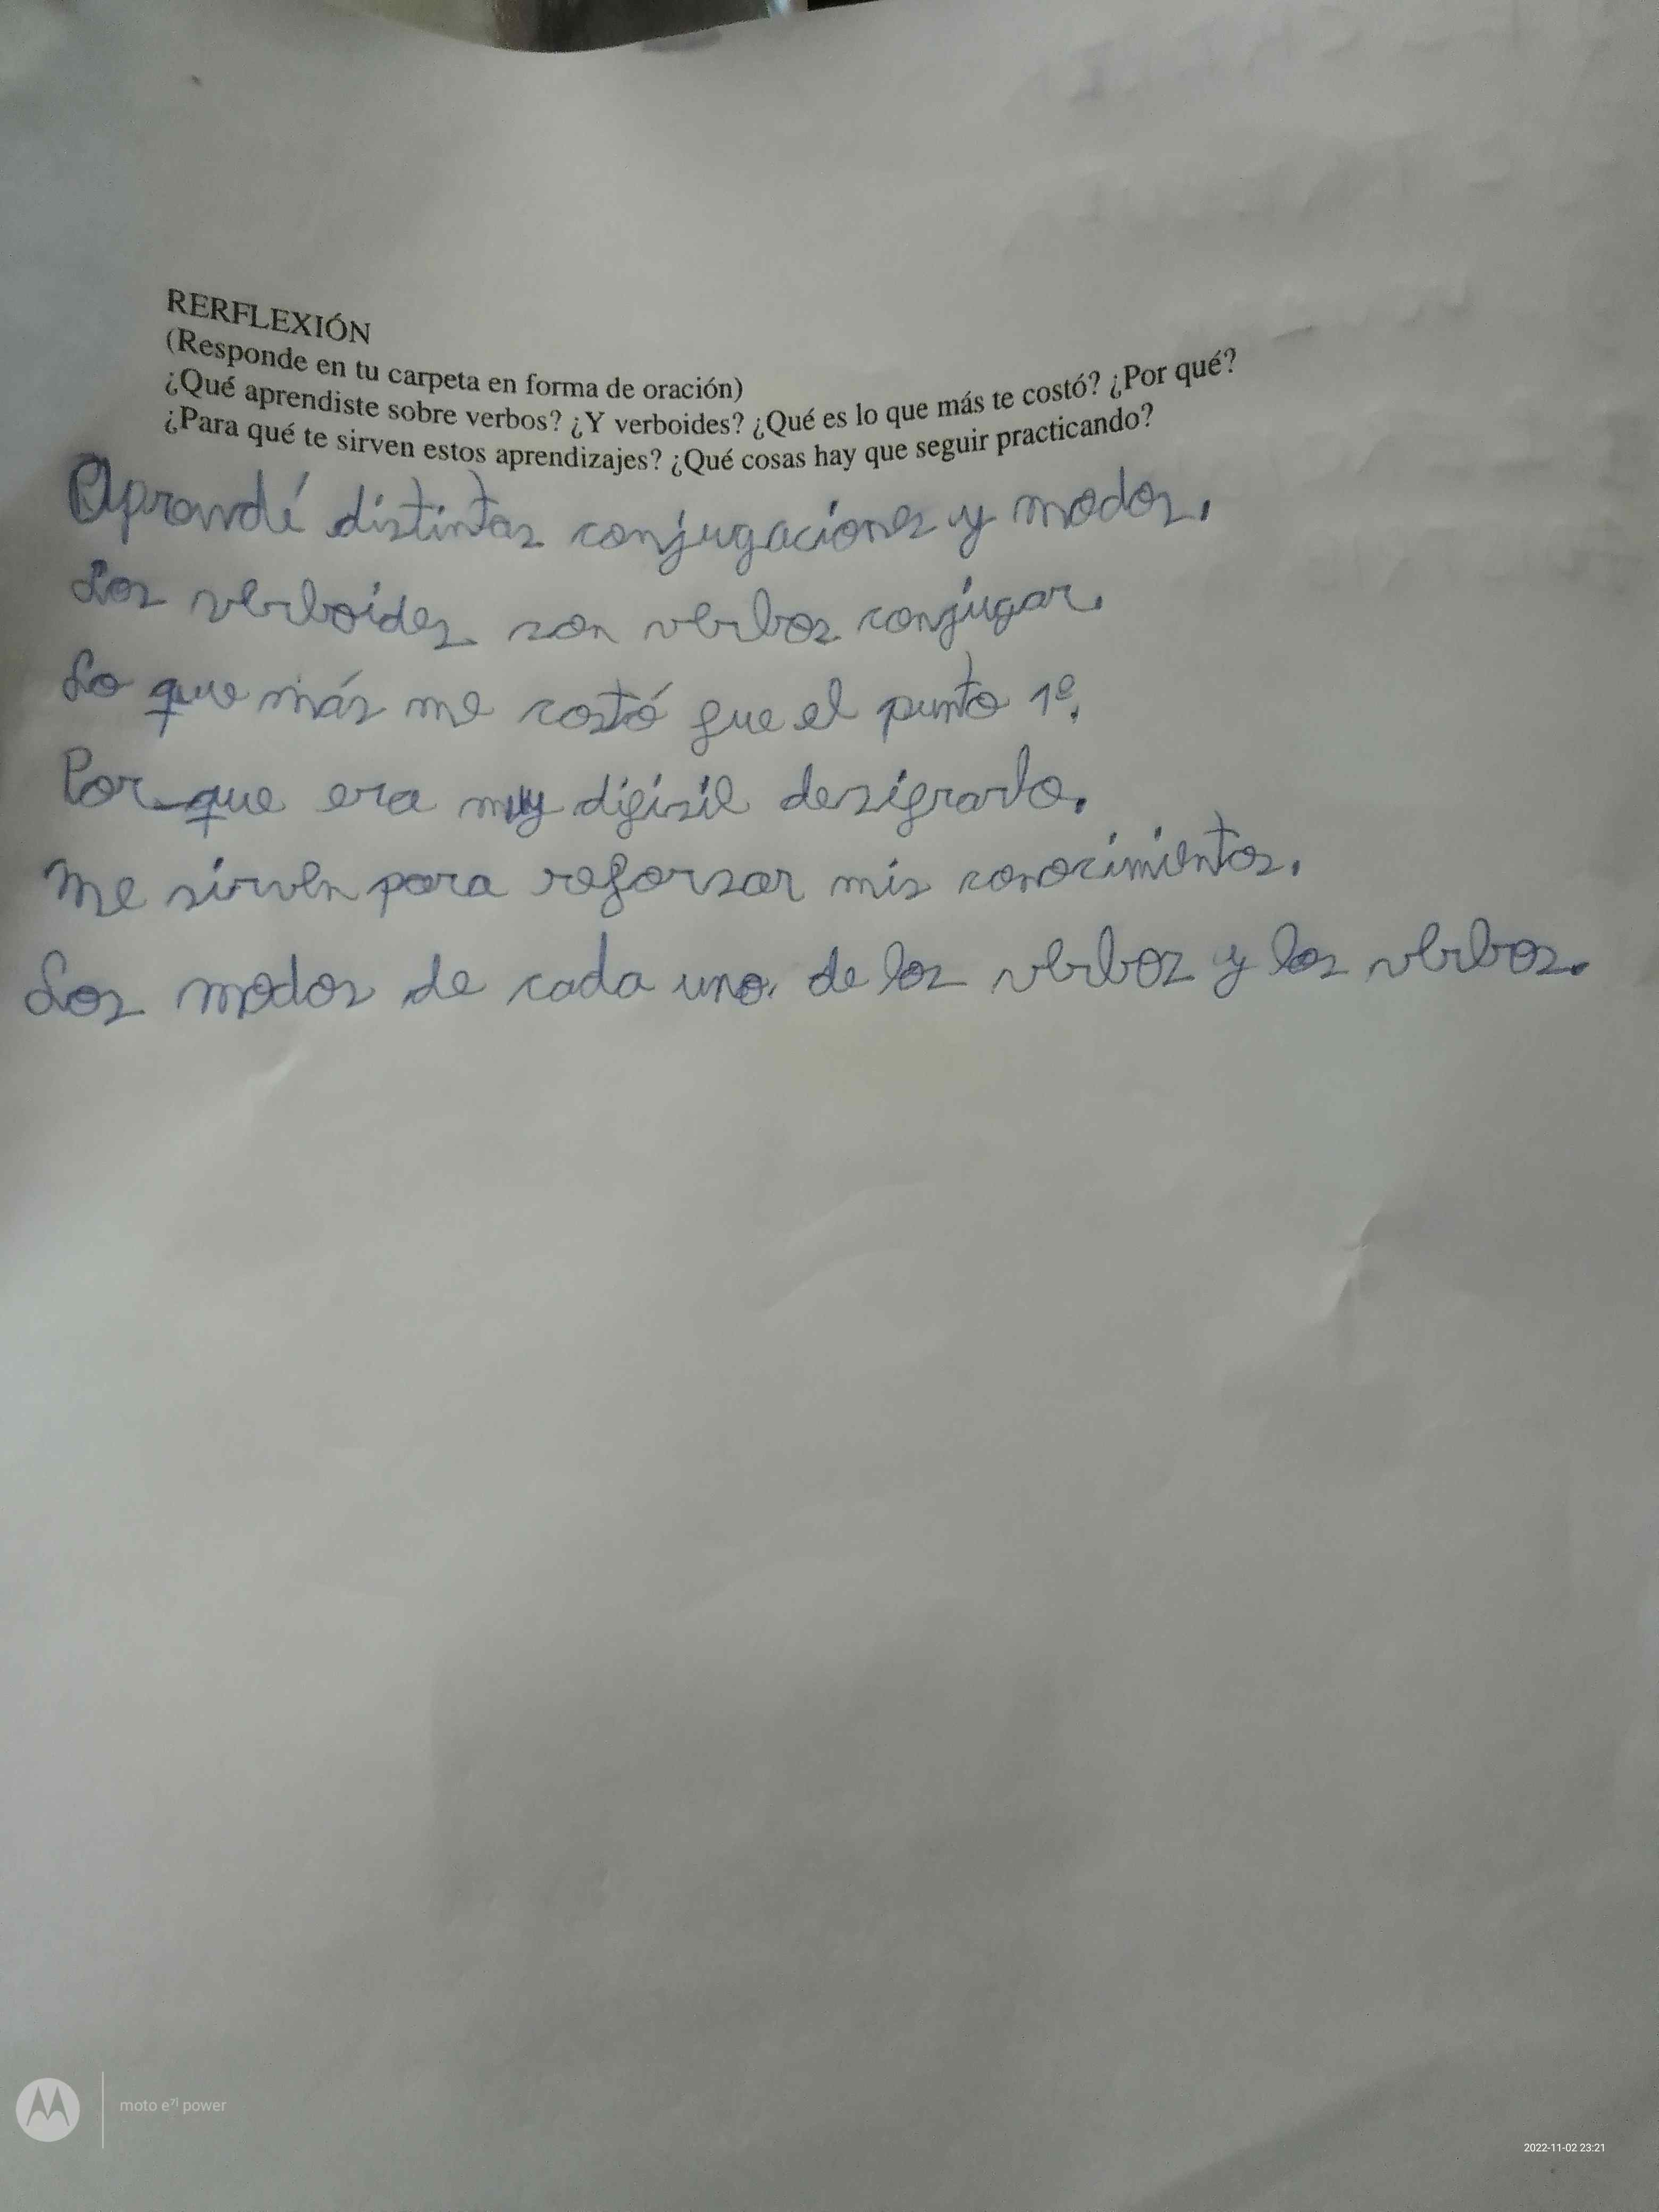 RERFLEXIÓN
(Responde en tu carpeta en forma de oración)
¿Qué aprendiste sobre verbos? ¿Y verboides? ¿Qué es lo que más te costó? ¿Por qué?
¿Para qué te sirven estos aprendizajes? ¿Qué cosas hay que seguir practicando?
Aprendé distintas conjugaciones y modos.
Los verboides son verbos conjugar.
Lo que más me costó fue el punto 1º.
Por que era muy difisil desifrarlo.
Me sirven para reforsar mis conocimientos.
Los modos de cada uno de los verbos y los verbos.
moto e⁷ⁱ power
2022-11-02 23:21